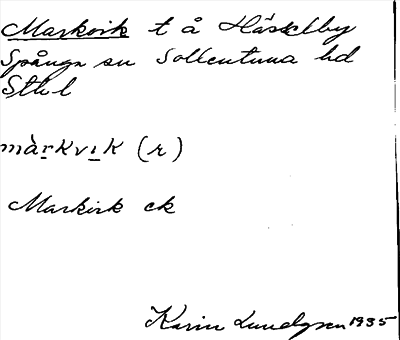 Markvik t å Hässelby
Spånga sn Sollentuna hd
Sthl
màrkvik (r)
Markvik ek
Karin Lundgren 1935